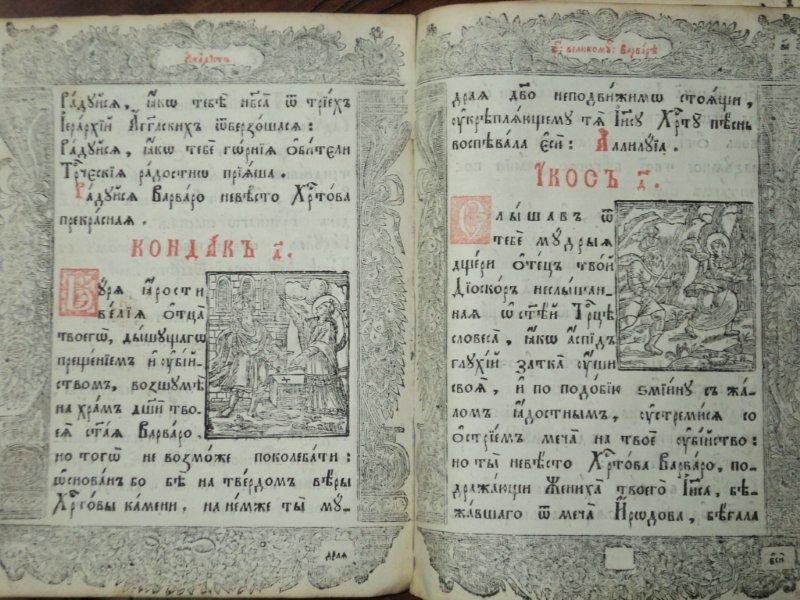 А҆ка́ѳїстъ
Ра́дꙋйсѧ, ꙗ҆́кѡ тебѣ̀ нб҃са̀ ѿ трїе́хъ
Їера́рхїй А҆́гг҃лскихъ ѿверзо́шасѧ:
Ра́дꙋйсѧ, ꙗ҆́кѡ тебѐ го́рнїѧ ѻ҆би́тели
Трⷪ҇ческїѧ ра́достнѡ прїѧ́ша.
Ра́дꙋйсѧ Варва́ро невѣ́сто Хрⷭ҇то́ва
прекра́снаѧ.
КОНДА́КЪ д҃.
Бꙋ́рѧ ꙗ҆́рости
ве́лїѧ ѻ҆тца̀
твоегѡ̀, ды́шꙋщагѡ
преще́нїемъ и҆ ᲂу҆бі́й-
ствомъ, возшꙋмѣ̀
на хра́мъ дш҃ѝ тво-
еѧ̀ ст҃а́ѧ Варва́ро,
но тогѡ̀ не возмо́же поколеба́ти:
ѡ҆снова́нъ бо бѣ̀ на тве́рдомъ вѣ́ры
Хрⷭ҇то́вы ка́мени, на не́мже ты̀ мꙋ́-
драѧ
вели́ком: Варва́рѣ
драѧ до́бѣ неподви́жимѡ стоѧ́щи,
ᲂу҆крѣплѧ́ющемꙋ тѧ̀ І҆и҃сꙋ Хрⷭ҇тꙋ̀ пѣ́снь
воспѣва́ла є҆сѝ: А҆ллилꙋ́їа.
І҆́КОСЪ д҃.
Слы́шавъ ѿ
тебѐ мꙋ́дрыѧ
дще́ри ѻ҆те́цъ тво́й
Дїо́скоръ неслы́шан-
наѧ ѡ҆ ст҃ѣ́й Трⷪ҇цѣ
словеса̀, ꙗ҆́кѡ а҆́спїдъ
глꙋхі́й заткà ᲂу҆́ши
своѧ̑, и҆ по подо́бїю ѕмїи́нꙋ съ жа́-
ломъ ꙗ҆́достнымъ, ᲂу҆стреми́сѧ со
ѻ҆́стрїемъ меча̀ на твоѐ ᲂу҆бі́йство:
но ты̀ невѣ́сто Хрⷭ҇то́ва Варва́ро, по-
дража́ющи Женихà твоегѡ̀ І҆и҃са, бѣ-
жа́вшаго ѿ меча̀ И҆́рѡдова, бѣ́гала
є҆сѝ